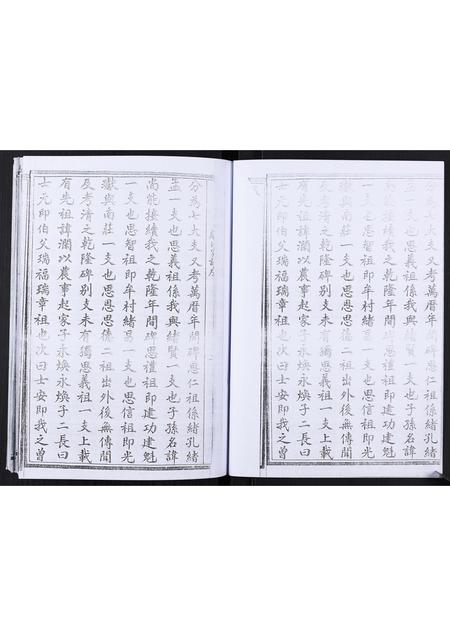 分為七大支又考萬曆年間碑思仁祖係緒孔緒
孟一支也思義祖係我與緒賢一支也子孫名諱
尚能接續我之乾隆年間碑思禮祖即建功建魁
一支也思智祖即牟村緒昌一支也思信祖即光
嶽與南莊一支也思恩思德二祖出外後無傳聞
及考清之乾隆碑別支未有獨思義祖一支上載
有先祖諱瀾以農事起家子永煥永煥子二長曰
士元即伯父瑞福瑞章祖也次曰士安即我之曾
分為七大支又考萬曆年間碑思仁祖係緒孔緒
孟一支也思義祖係我與緒賢一支也子孫名諱
尚能接續我之乾隆年間碑思禮祖即建功建魁
一支也思智祖即牟村緒昌一支也思信祖即光
嶽與南莊一支也思恩思德二祖出外後無傳聞
及考清之乾隆碑別支未有獨思義祖一支上載
有先祖諱瀾以農事起家子永煥永煥子二長曰
士元即伯父瑞福瑞章祖也次曰士安即我之曾